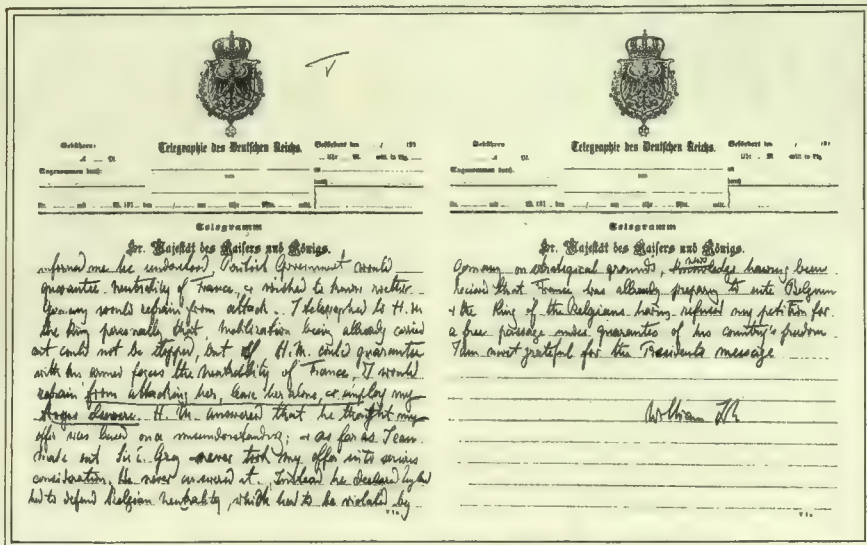 V
Gebühren:
Telegraphie des Deutschen Reichs.
Befördert den
Telegramm
Sr. Majestät des Kaisers und Königs.
informed me he understood, British Government would
guarantee neutrality of France, & wished to know wether
Germany would refrain from attack. I telegraphed to H.M.
the King personally that, mobilization being already carried
out could not be stopped, but if H.M. could guarantee
with his armed forces the neutrality of France, I would
refrain from attacking her, leave her alone, & employ my
troops elsewere. H.M. answered that he thought my
offer was based on a misunderstanding; & as far as I can
make out Sir E. Grey never took my offer into serious
consideration. He never answered it. Instead he declared England
had to defend Belgian neutrality, which had to be violated by
Gebühren:
Telegraphie des Deutschen Reichs.
Befördert den
Telegramm
Sr. Majestät des Kaisers und Königs.
Germany on strategical grounds, news having been
recieved that France was already preparing to enter Belgium
& the King of the Belgians having refused my petition for
a free passage under guarantee of his country's freedom.
I am most grateful for the Presidents message
William IR